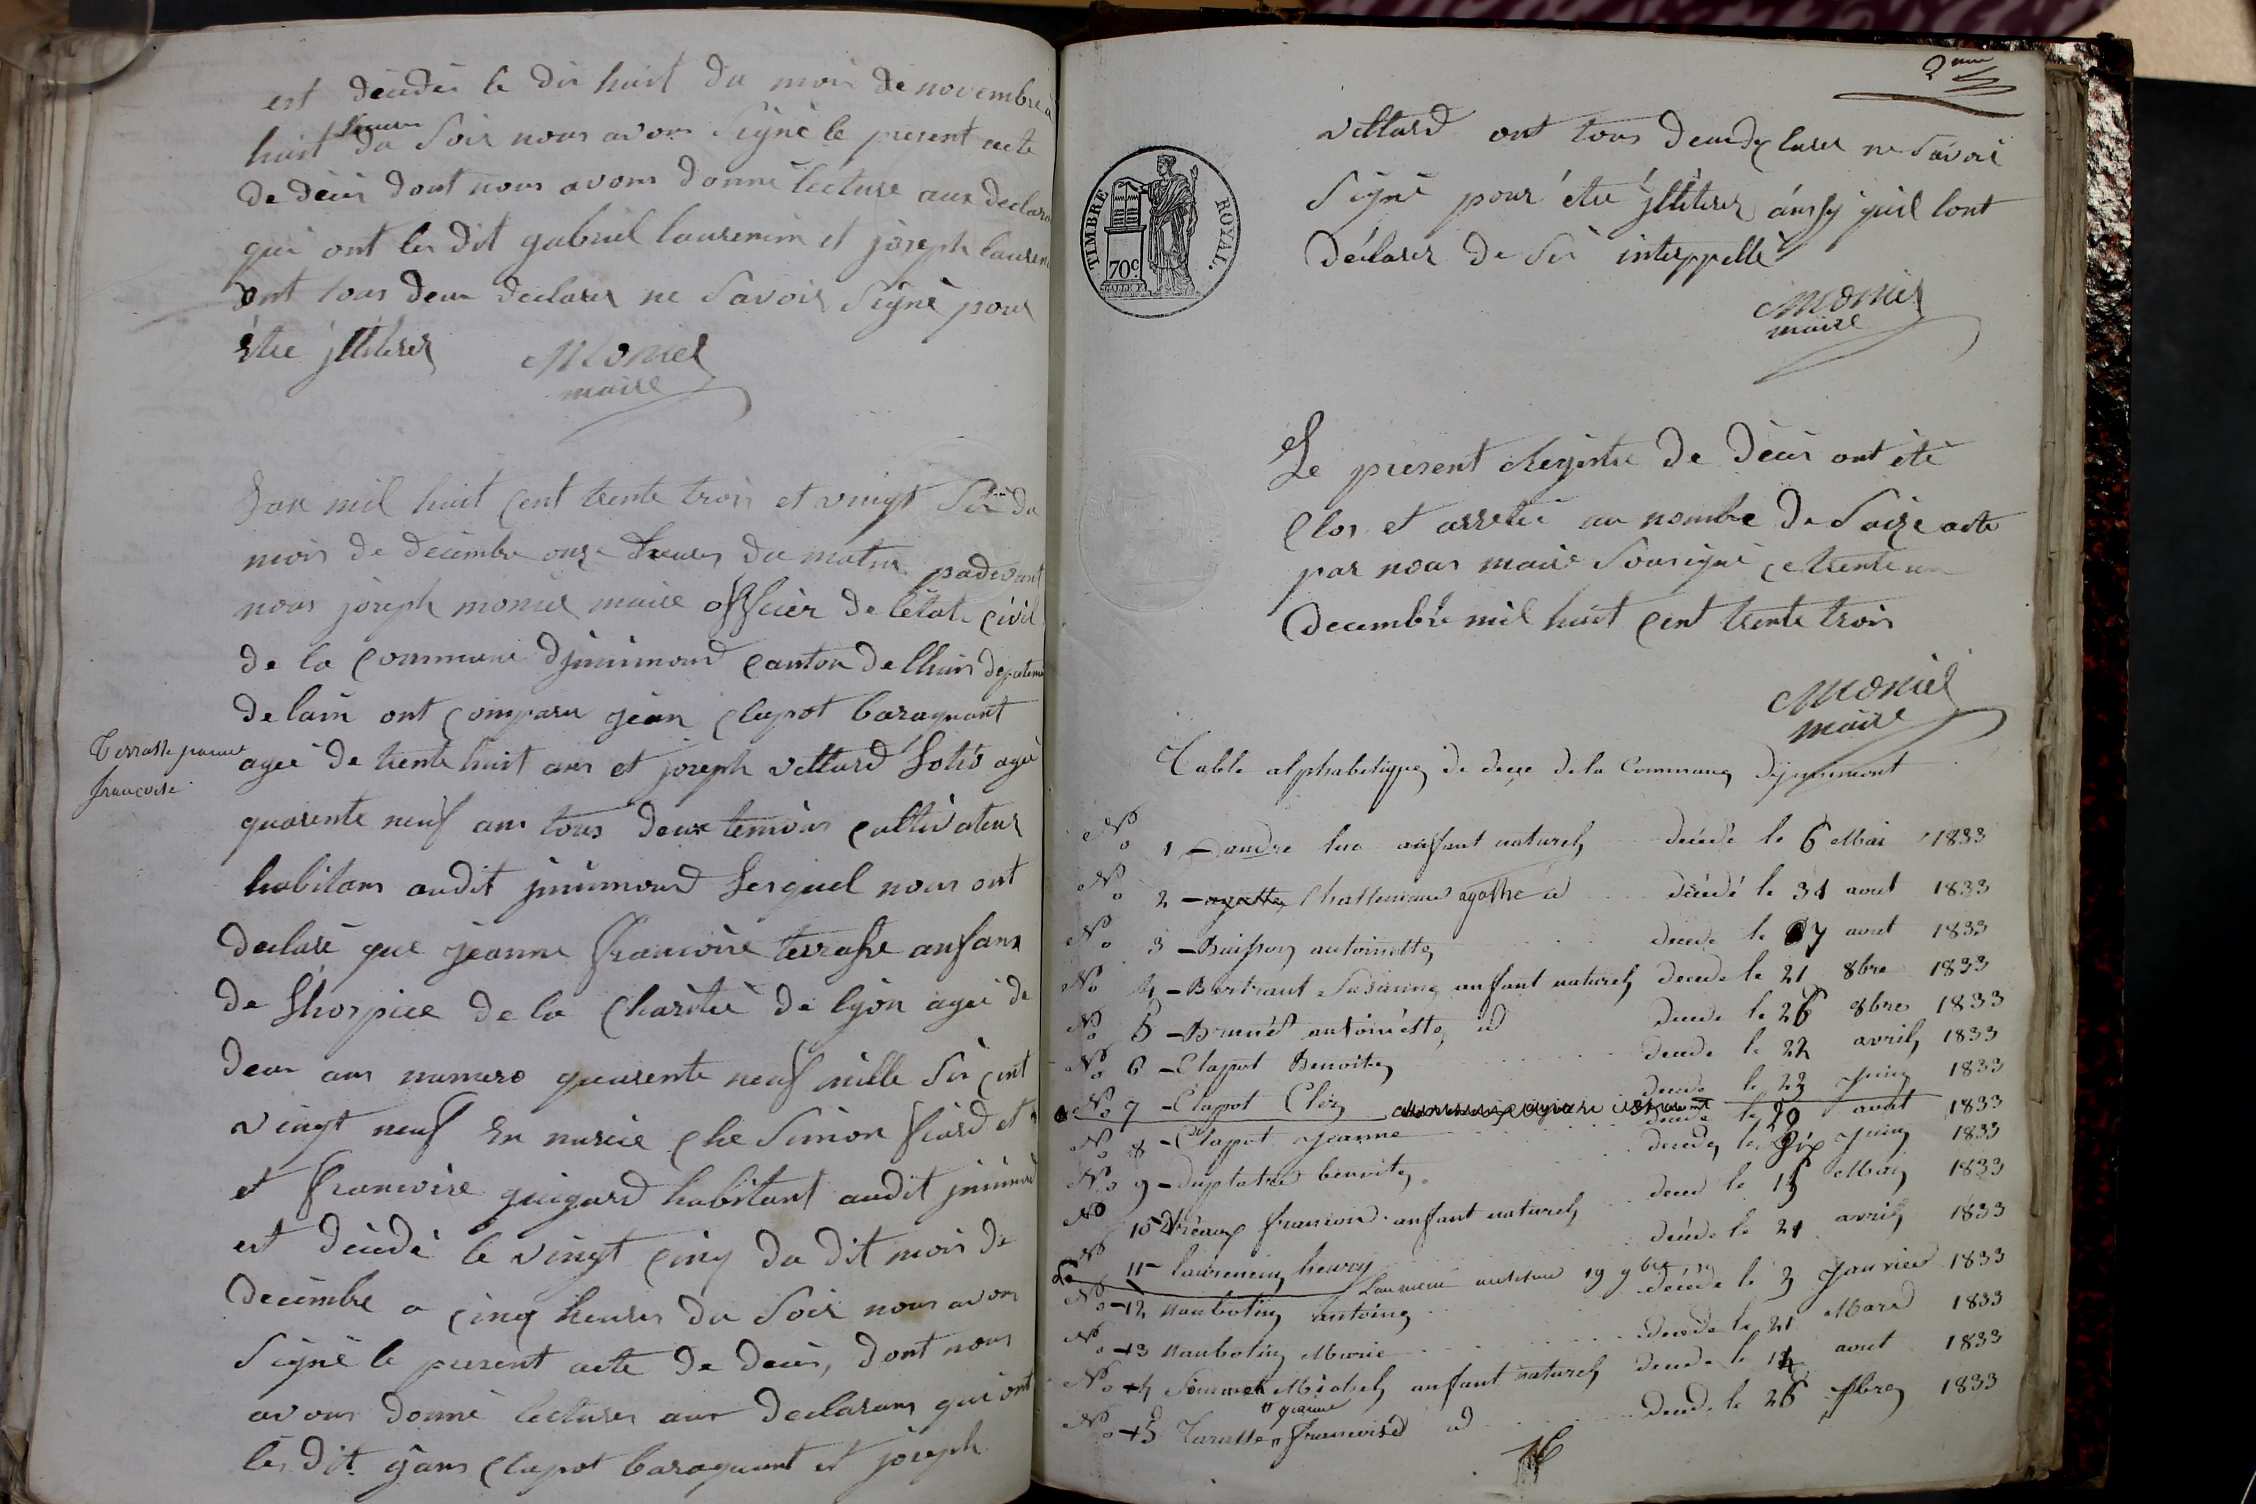 est décédés le dix huit du mois de novembre a
huit heures du soir nous avons signé le present acte
de décés dont nous avons donné lecture aux declara
qui ont les dit gabriel laurencin et joseph lauren
ont tous deux declarer ne savoir signé pour
étre jlliterer Monier
maire
Lan mil huit cent trente trois et vingt six du
mois de décembre onze heures du matin padevant
nous joseph monier maire officier de létat civil
de la commune djnnimond canton de lhuis departeme
de lain ont comparu géan clapot baraquant
agée de trente huit ans et joseph vettard agé
Terrasse jeanne
françoise
quarente neuf ans tous deux temoins cultivateur
habitans audit jnnimond lesquel nous ont
declaré que jeanne francoise terrasse anfant
de lhospice de la charitée de lyon agée de
deux ans numero quarente neuf mille six cent
vingt neuf en nurice che simon fiard et
et francoise guigard habitant audit jnnimond
est décédé le vingt cinq du dit mois de
decembre a cinq heures du soir nous avons
signé le present acte de deces, dont nous
avons donné lecturer aux declarans qui ont
les dit géans clapot baraquant et joseph
2me
TIMBRE ROYAL.
70c
vettard ont tous deux declarer ne savoir
signé pour étre jlliterer ainsy quil lont
déclarer de ser interppellé
Monier
maire
Le present Registre de décés ont été
clos et arretée au nombre de saize acte
par nous maire sousigné ce trente un
Decembre mil huit cent trente trois
Monier
maire
Table alphabetique de deçe de la Commune djnnimont
No 1 - andre luc anfant naturel décédé le 6 Mai 1833
No 2 - agathe Challemane agathe id décédé le 31 aout 1833
No 3 - Buisson antoinette decede le 07 aout 1833
No 4 - Bertraut Susanne anfant naturel decede le 21 8bre 1833
No 5 - Brunet antoinette id decede le 26 8bre 1833
No 6 - Clapot Benoite decede le 22 avril 1833
No 7 - Clapot Clér decede le 23 Juin 1833
No 8 - Clapot jeanne decede le 20 aout 1833
No 9 - Duplatre benoite decede le Dix Juin 1833
No 10 - Dréaux francois anfant naturel deced le 15 Mai 1833
No 11 - laurencin henry décéde le 21 avril 1833
19 9bre
No 12 Naubotin antoine décéde le 3 Janvier 1833
No 13 Naubotin Marie decede le 21 Mars 1833
No 14 Simonet Michel anfant naturel decede le 14 aout 1833
jeanne
No 15 Tarasse francoise id decede le 26 1833